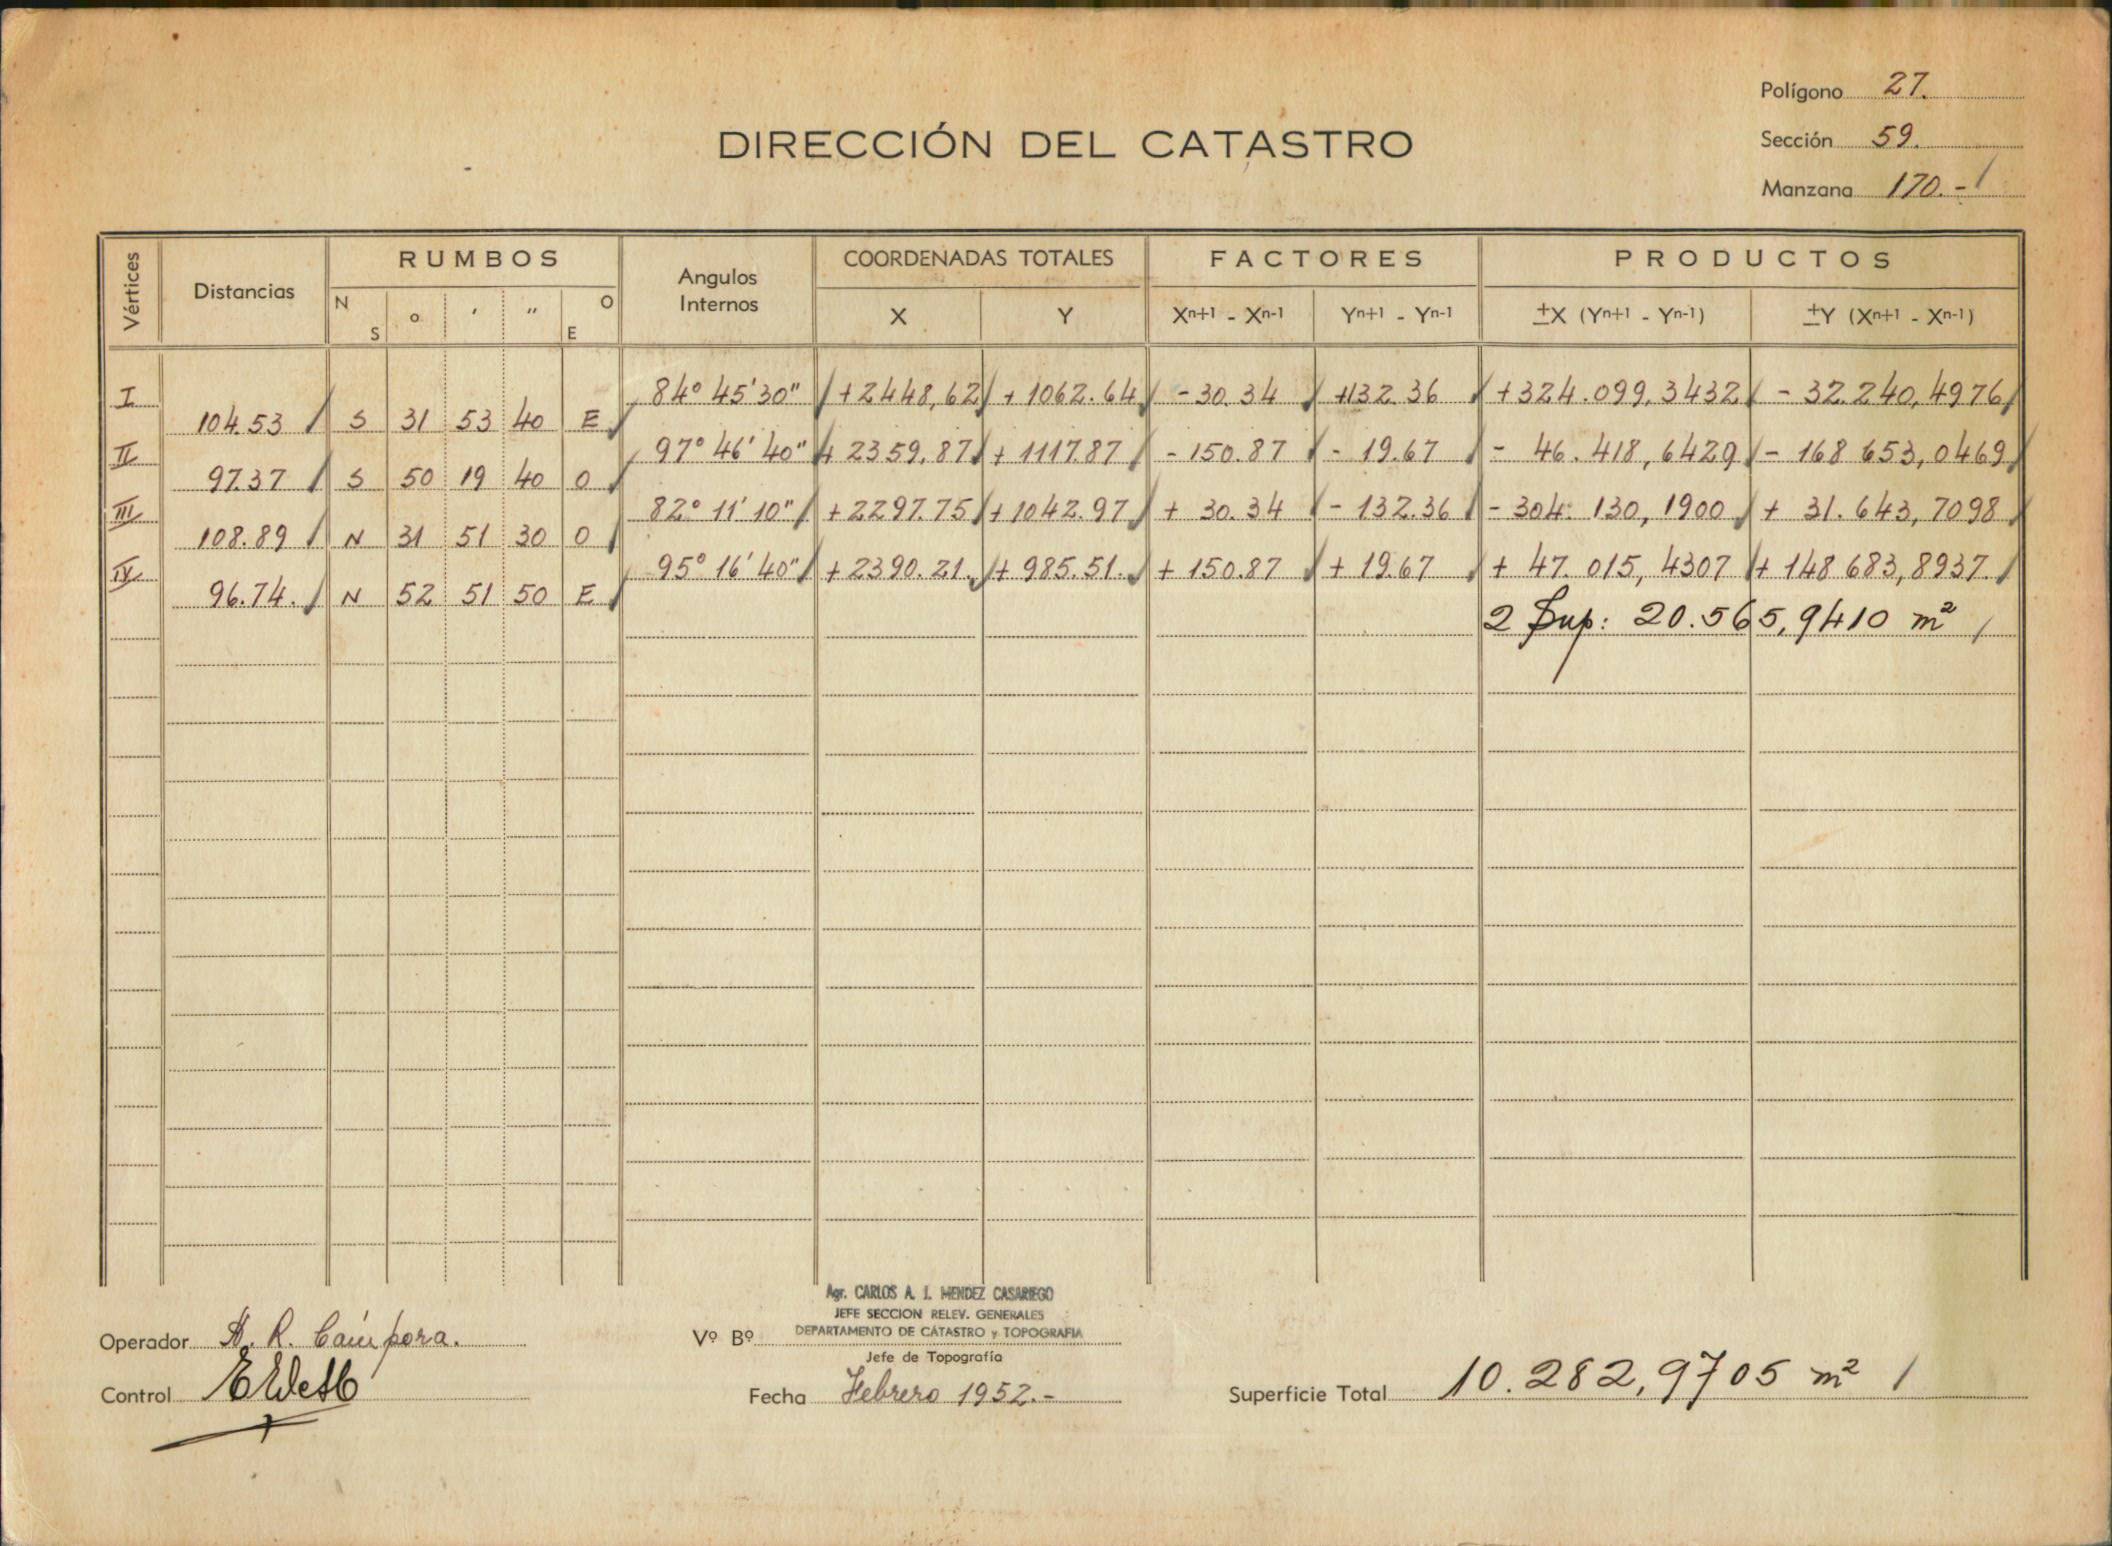 Polígono 27.
DIRECCIÓN DEL CATASTRO
Sección 59.
Manzana 170.-
Vértices Distancias RUMBOS Angulos Internos COORDENADAS TOTALES FACTORES PRODUCTOS
N S o ' " O E X Y Xn+1 - Xn-1 Yn+1 - Yn-1 ±X (Yn+1 - Yn-1) ±Y (Xn+1 - Xn-1)
I 84° 45' 30" +2448,62 + 1062.64 - 30.34 +132.36 +324.099,3432 - 32.240,4976
104.53 S 31 53 40 E
II 97° 46' 40" + 2359,87 + 1117.87 - 150.87 - 19.67 - 46.418,6429 - 168 653,0469
97.37 S 50 19 40 O
III 82° 11' 10" + 2297.75 + 1042.97 + 30.34 - 132.36 - 304. 130, 1900 + 31.643,7098
108.89 N 31 51 30 O
IV 95° 16' 40" + 2390.21. + 985.51. + 150.87 + 19.67 + 47.015, 4307 + 148 683,8937.
96.74. N 52 51 50 E
2 Sup: 20.565,9410 m²
Agr. CARLOS A. J. MENDEZ CASARIEGO
JEFE SECCION RELEV. GENERALES
Operador A. R. Cámpora. Vº Bº DEPARTAMENTO DE CATASTRO y TOPOGRAFIA
Jefe de Topografía
Control Fecha Febrero 1952.- Superficie Total 10.282,9705 m²